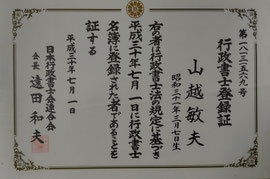 第一八一三二五六九号
行政書士登録証
山越敏夫
昭和三十一年三月七日生
右の者は行政書士法の規定に基づき
平成三十年七月一日に行政書士
名簿に登録された者であることを
証する
平成三十年七月一日
日本行政書士会連合会
会長 遠田和夫